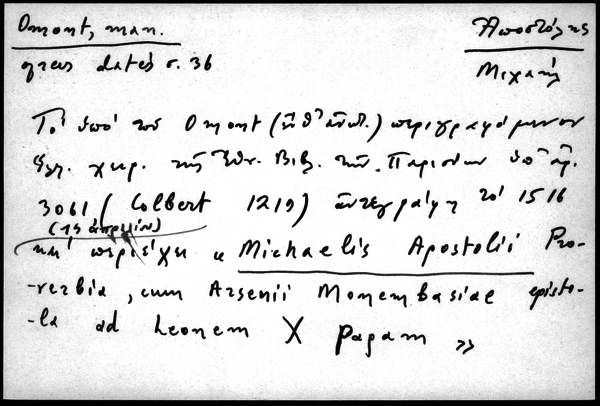 Omont, man. Ἀποστόλης
grecs datés σ. 36 Μιχαήλ
Τὸ ὑπὸ τοῦ Omont (ἔνθ' ἀνωτ.) περιγραφόμενον
ἑλλ. χειρ. τῆς Ἐθν. Βιβλ. τῶν Παρισίων ὑπ' ἀρ.
3061 (Colbert 1219) ἀντεγράφη τὸ 1516
(13 ἀπριλίου)
καὶ περιέχει « Michaelis Apostolii Pro-
-verbia, cum Arsenii Monembasiae episto-
-la ad Leonem X papam »